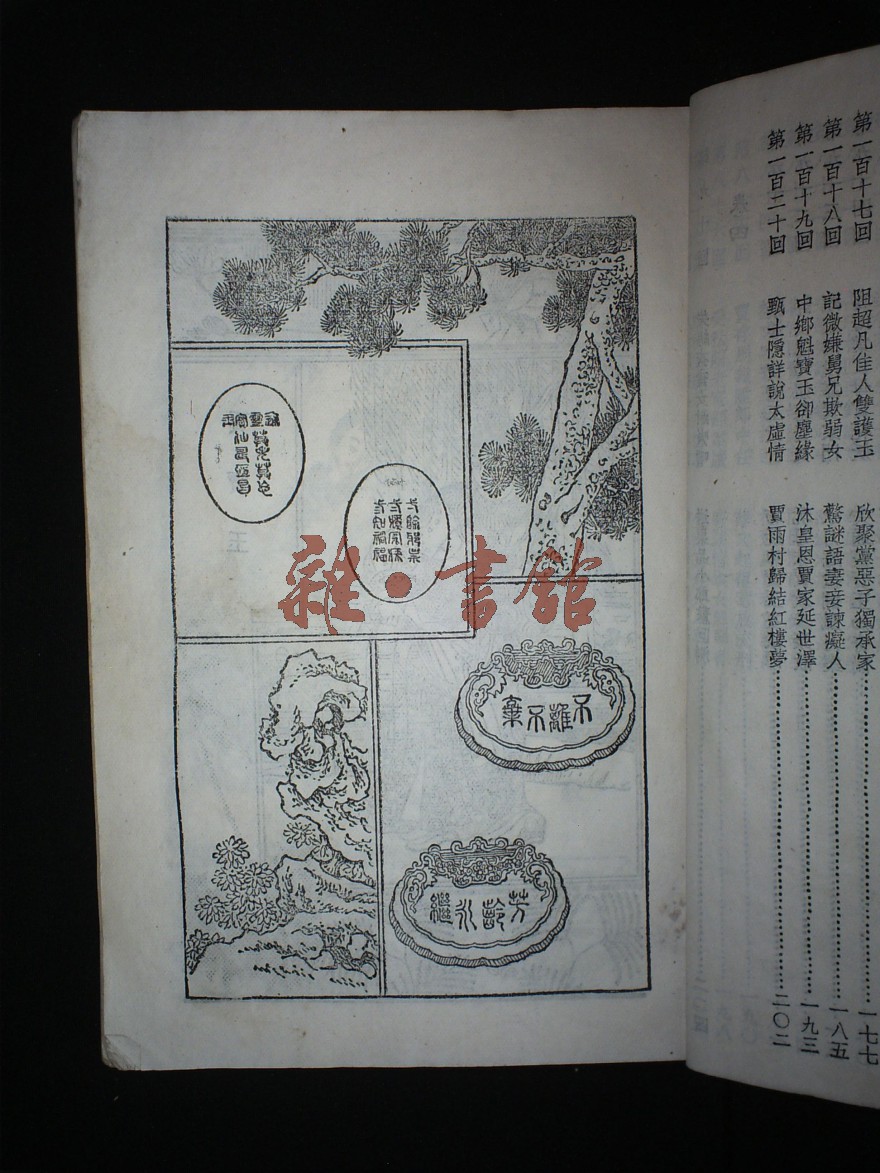 第一百十七回 阻超凡佳人雙護玉 欣聚黨惡子獨承家……一七七
第一百十八回 記微嫌舅兄欺弱女 驚謎語妻妾諫癡人……一八五
第一百十九回 中鄉魁寶玉卻塵緣 沐皇恩賈家延世澤……一九三
第一百二十回 甄士隱詳說太虛情 賈雨村歸結紅樓夢……二〇二
通靈寶玉
莫失莫忘
仙壽恆昌
一除邪祟
二療冤疾
三知禍福
雜·書館
不離不棄
芳齡永繼